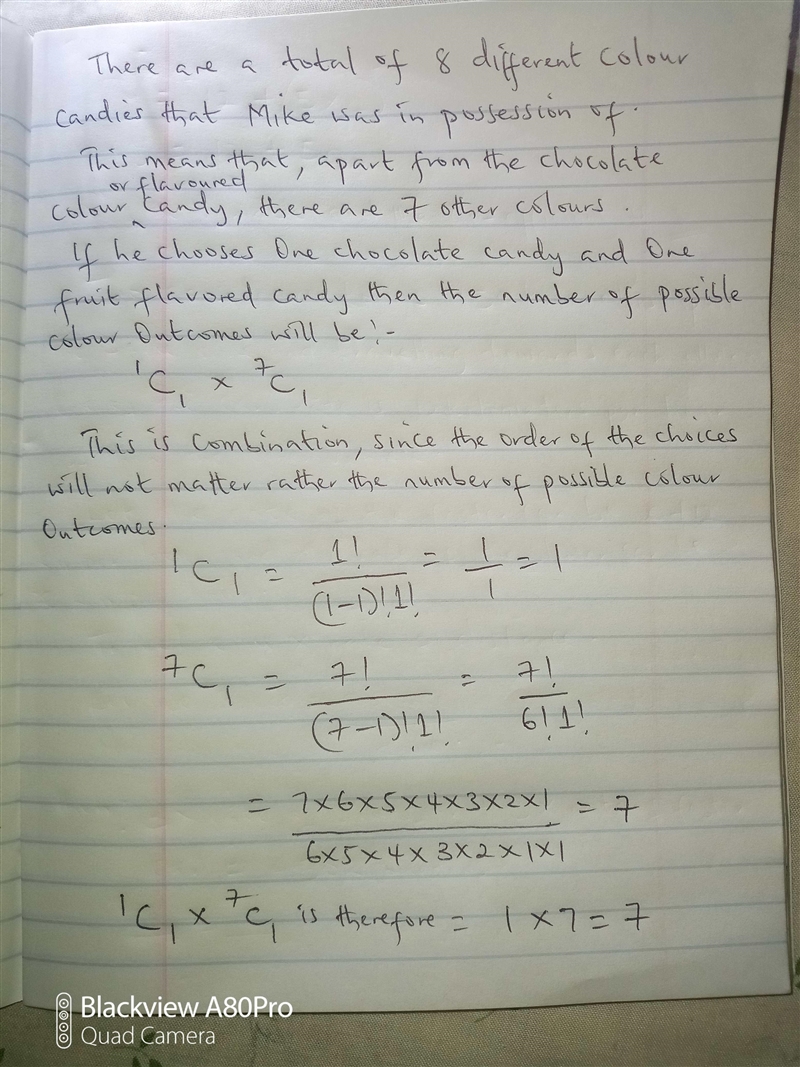 There are a total of 8 different colour
candies that Mike was in possession of.
This means that, apart from the chocolate
or flavoured
colour ^ candy, there are 7 other colours.
If he chooses One chocolate candy and One
fruit flavored candy then the number of possible
colour Outcomes will be:-
¹C₁ × ⁷C₁
This is Combination, since the order of the choices
will not matter rather the number of possible colour
Outcomes.
¹C₁ = 1!/(1-1)!1! = 1/1 = 1
⁷C₁ = 7!/(7-1)!1! = 7!/6!1!
= 7×6×5×4×3×2×1/6×5×4×3×2×1×1 = 7
¹C₁ × ⁷C₁ is therefore = 1 × 7 = 7
Blackview A80Pro
Quad Camera